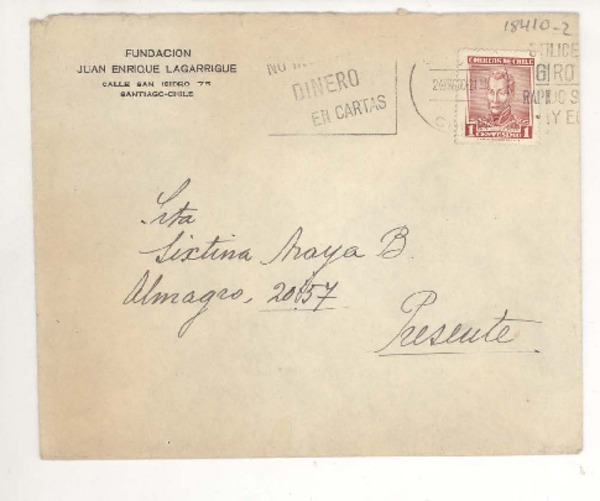 18410-2
FUNDACION
JUAN ENRIQUE LAGARRIGUE
CALLE SAN ISIDRO 75
SANTIAGO-CHILE
NO
DINERO
EN CARTAS
CORREOS DE CHILE
1 CENTESIMO 1
GIRO
RAPIDO S
Srta
Sixtina Araya B.
Almagro, 2057
Presente